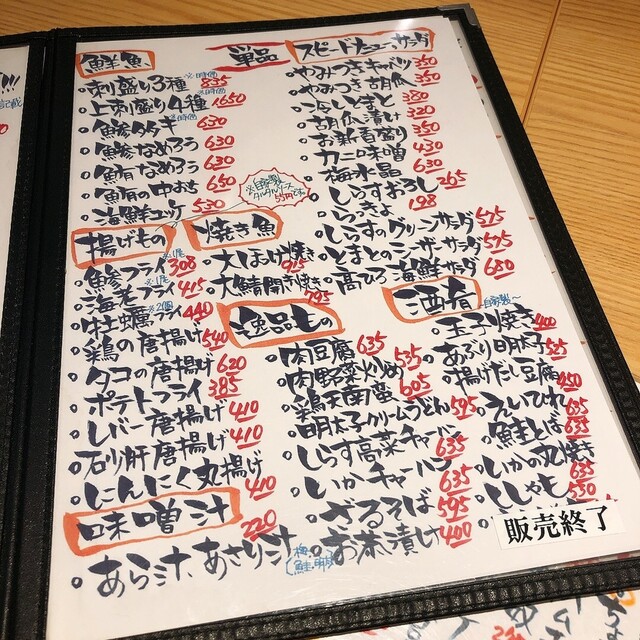 鮮魚
単品
※時価
刺盛り3種 835
※時価
上刺盛り4種 1650
※時価
鯵タタキ 630
鯵なめろう 630
鰯なめろう 630
鰯の中おち 650
海鮮ユッケ 530
※自家製
タルタルソース
55円です。
揚げもの
※1尾
鯵フライ 308
※1尾
海老フライ 415
※2個
牡蠣フライ 440
鶏の唐揚げ 540
タコの唐揚げ 620
ポテトフライ 385
レバー唐揚げ 410
砂肝唐揚げ 410
にんにく丸揚げ 410
味噌汁
あら汁、あさり汁 220
焼き魚
大ほっけ焼き 915
大鯖開き焼き 795
スピードメニュー、サラダ
やみつきキャベツ 350
やみつき胡瓜 350
冷しとまと 380
胡瓜一本漬け 320
お新香盛り 350
カニ味噌 430
梅水晶 430
しらすおろし 265
らっきょ 198
しらすのグリーンサラダ 575
とまとのシーザーサラダ 575
高ひろ海鮮サラダ 680
逸品もの
肉豆腐 635
肉野菜炒め 535
鶏天南蛮 605
明太子クリームうどん 595
しらす高菜チャーハン 635
いかチャーハン 635
ざるそば 595
お茶漬け 400
酒肴
~自家製~
玉子焼き 400
あぶり明太子 525
揚げだし豆腐 450
えいひれ 635
鮭とば 635
いかの丸焼き 635
ししゃも 530
販売終了